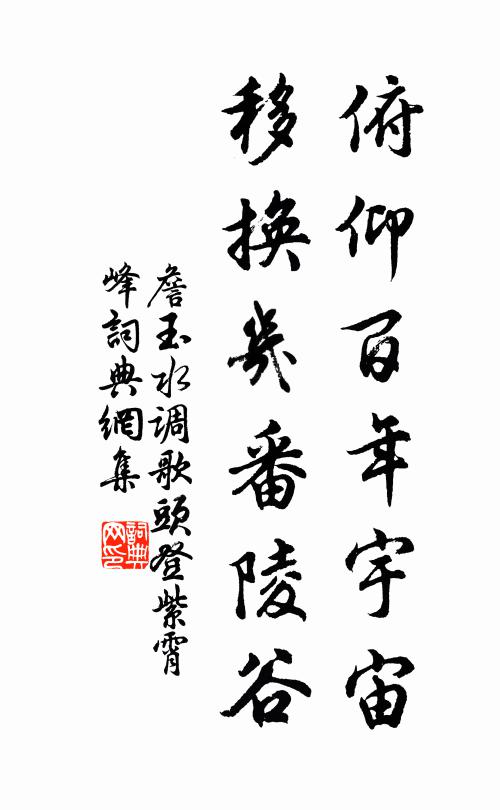 俯仰百年宇宙
移換幾番陵谷
詹玉水调歌頭登紫霄
峰詞典網集
詞典
网印